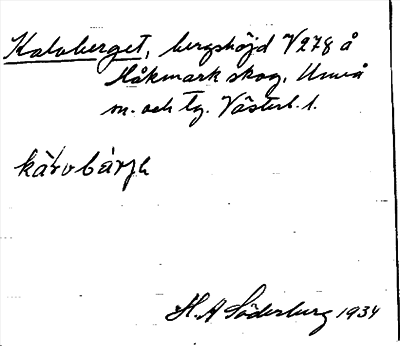 Kalvberget, bergshöjd V278 å
Håkmark skog, Umeå
m. och tg. Västerb. l.
H. A Söderberg 1934